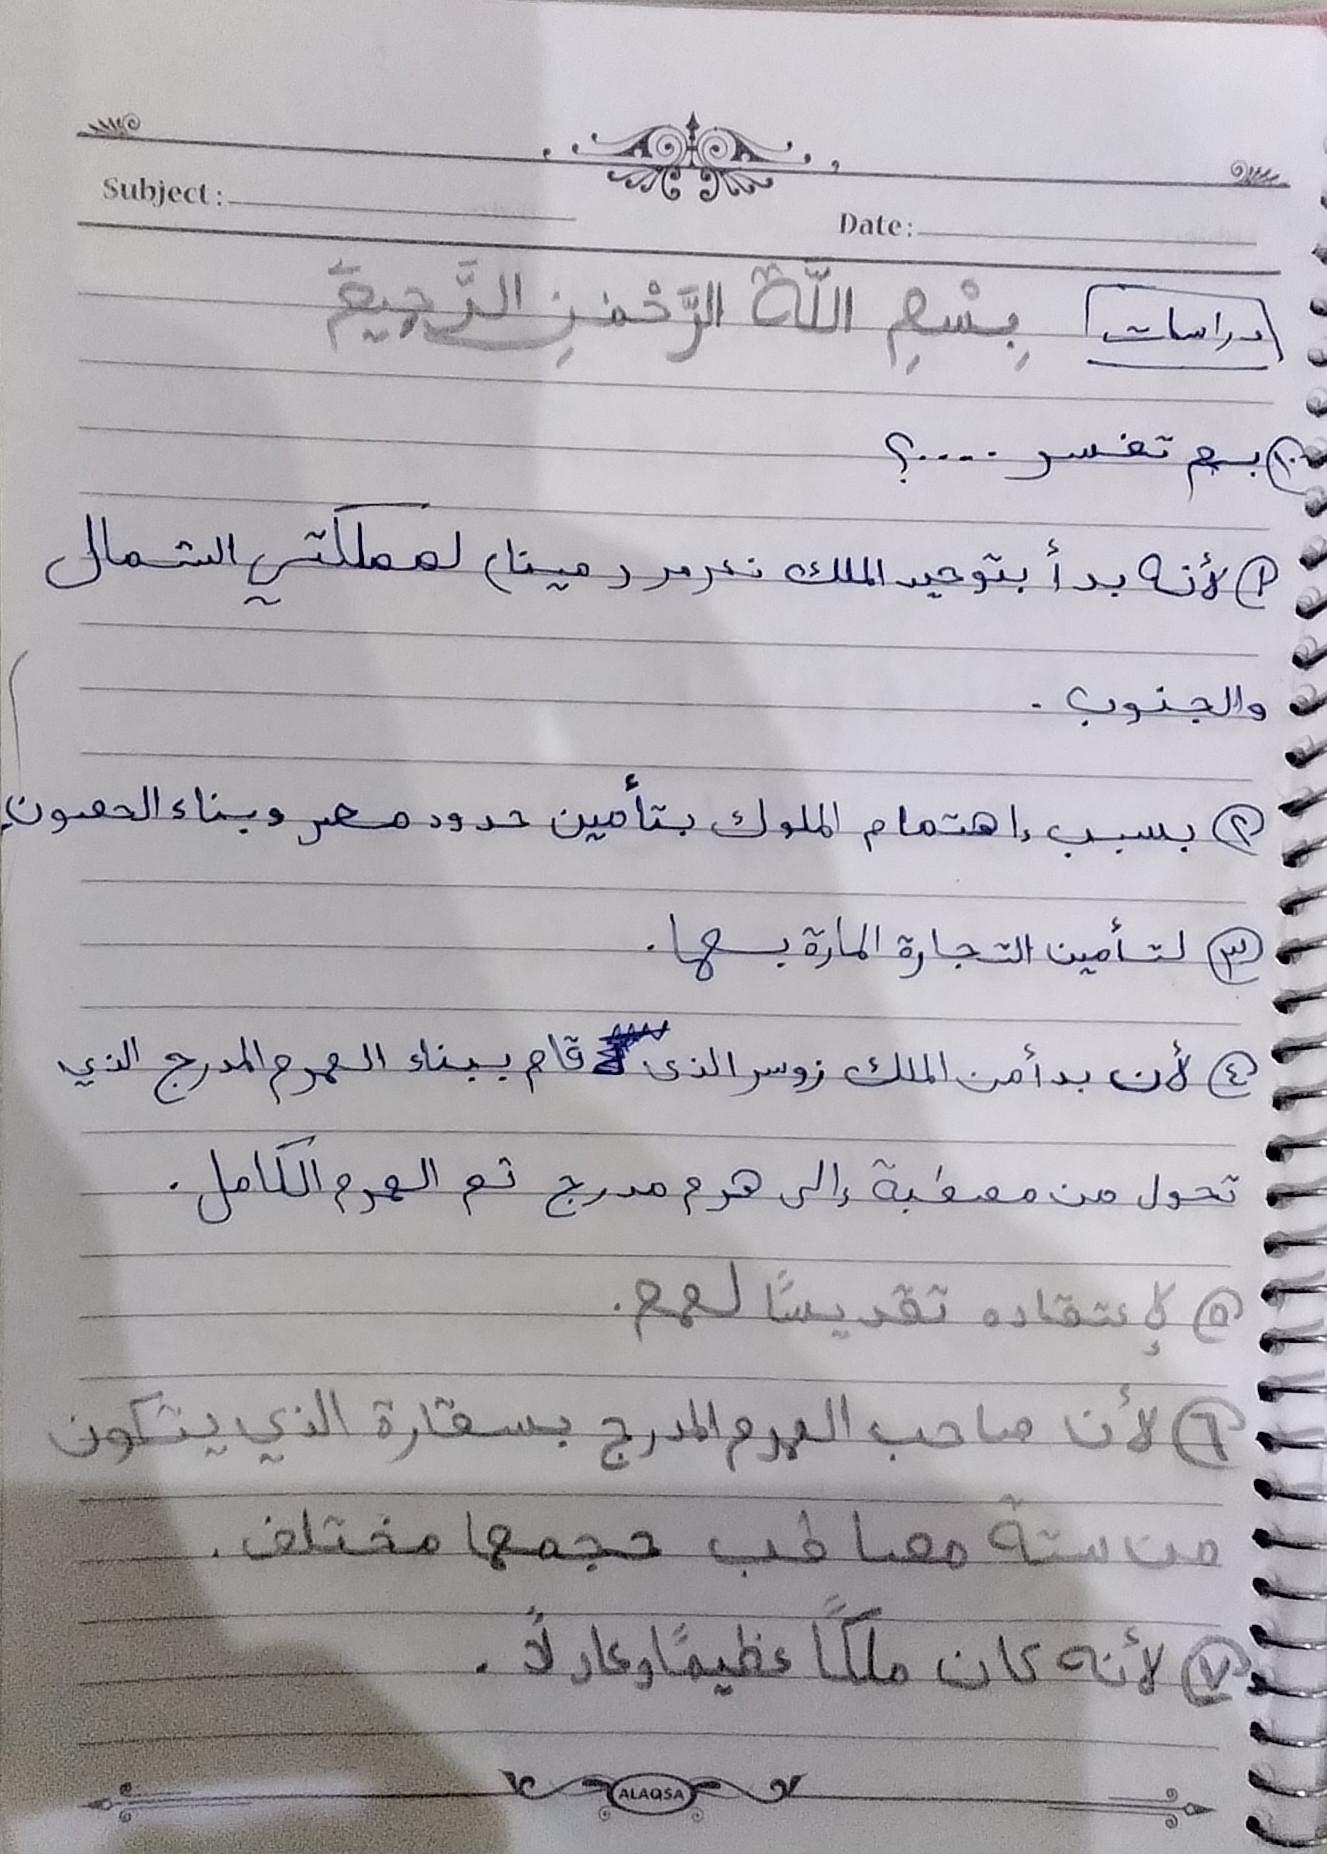 Subject:
Date:
دراسات
بِسْمِ اللَّهِ الرَّحْمٰنِ الرَّحِيمِ
١٠ بم تفسر ....؟
١ لأنه بدأ بتوحيد الملك نعرمر (مينا) لمملكتي الشمال
والجنوب .
٢ بسبب إهتمام الملوك بتأمين حدود مصر وبناء الحصون.
٣ لتأمين التجارة المارة بها.
٤ لأن بدأ من الملك زوسر الذى قام ببناء الهرم المدرج الذي
تحول من مصطبة إلى هرم مدرج ثم الهرم الكامل.
٥ لإعتقاده تقديسًا لهم.
٦ لأن صاحب الهرم المدرج بسقارة الذي يتكون
من ستة مصاطب حجمها مختلف.
٧ لأنه كان ملكًا عظيمًا وعادلًا.
ALAQSA